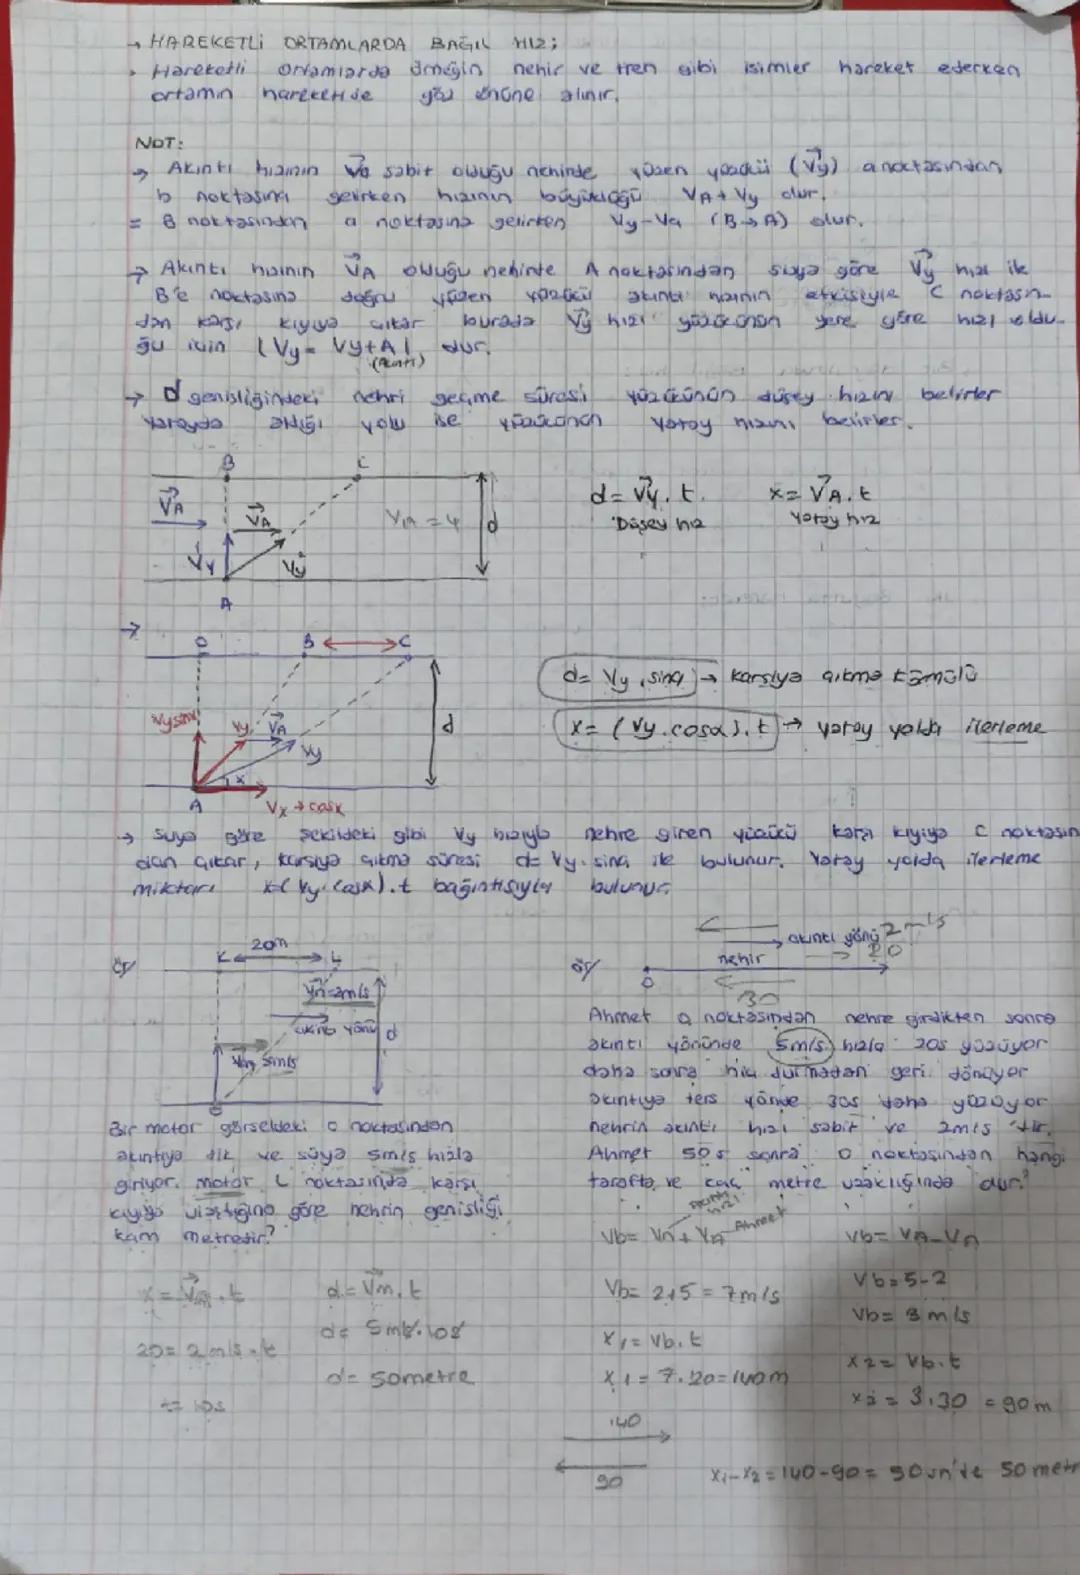 → HAREKETLİ ORTAMLARDA BAĞIL HIZ;
Hareketli ortamlarda örneğin nehir ve tren gibi isimler hareket ederken
ortamın hareketide göz önüne alınır.
NOT:
→ Akıntı hızının Va sabit olduğu nehirde yüzen yüzücü (Vy) a noktasından
b noktasına gelirken hızının büyüklüğü VA + Vy olur.
= B noktasından a noktasına gelirken Vy - Va (B→A) olur.
→ Akıntı hızının VA olduğu nehirde A noktasından suya göre Vy hızı ile
B'e noktasına doğru yüzen yüzücü akıntı hızının etkisiyle C noktasın-
dan karşı kıyıya çıkar burada Vy hızı yüzücünün yere göre hızı oldu-
ğu için (Vy = Vy+A) dur.
(Akıntı)
→ d genişliğindeki nehri geçme süresi yüzücünün düşey hızını belirler
yatayda aldığı yolu ise yüzücünün yatay hızını belirler.
B C
VA VA V1A = 4 d
Vy Vy
A
d = Vy . t. x = VA . t
Düşey hız Yatay hız
→
O B C
Vysinx Vy VA Vy d
x
A Vx → cosx
d = Vy . sinα → karşıya çıkma formülü
x = (Vy . cosα) . t → yatay yolda ilerleme
→ Suya göre şekildeki gibi Vy hızıyla nehre giren yüzücü karşı kıyıya C noktasın
dan çıkar, karşıya çıkma süresi d = Vy . sinα ile bulunur. Yatay yolda ilerleme
miktarı x = (Vy . cosx) . t bağıntısıyla bulunur.
ör/
20m
K L
Vn = 2m/s
akıntı yönü d
Vm 5m/s
O
Bir motor görseldeki o noktasından
akıntıya dik ve suya 5m/s hızla
giriyor. motor L noktasında karşı
kıyıya ulaştığına göre nehrin genişliği
kam metredir?
x = . t
20 = 2 m/s . t
t = 10s
d = Vm . t
d = 5m/s . 10s
d = 50metre
ör/
akıntı yönü 2 m/s
nehir 20
O
30
Ahmet o noktasından nehre girdikten sonra
akıntı yönünde 5m/s hızla 20s yüzüyor
daha sonra hiç durmadan geri dönüyor
akıntıya ters yönde 30s daha yüzüyor
nehrin akıntı hızı sabit ve 2m/s 'dir.
Ahmet 50s sonra O noktasından hangi
tarafta ve kaç metre uzaklığında olur?
Akıntı hızı
Ahmet
Vb = Vn + VA
Vb = 2+5 = 7m/s
x1 = Vb . t
x1 = 7.20 = 140m
140
90
Vb = VA - Vn
Vb = 5-2
Vb = 3 m/s
x2 = Vb . t
x2 = 3.30 = 90m
x1 - x2 = 140 - 90 = 50 metr